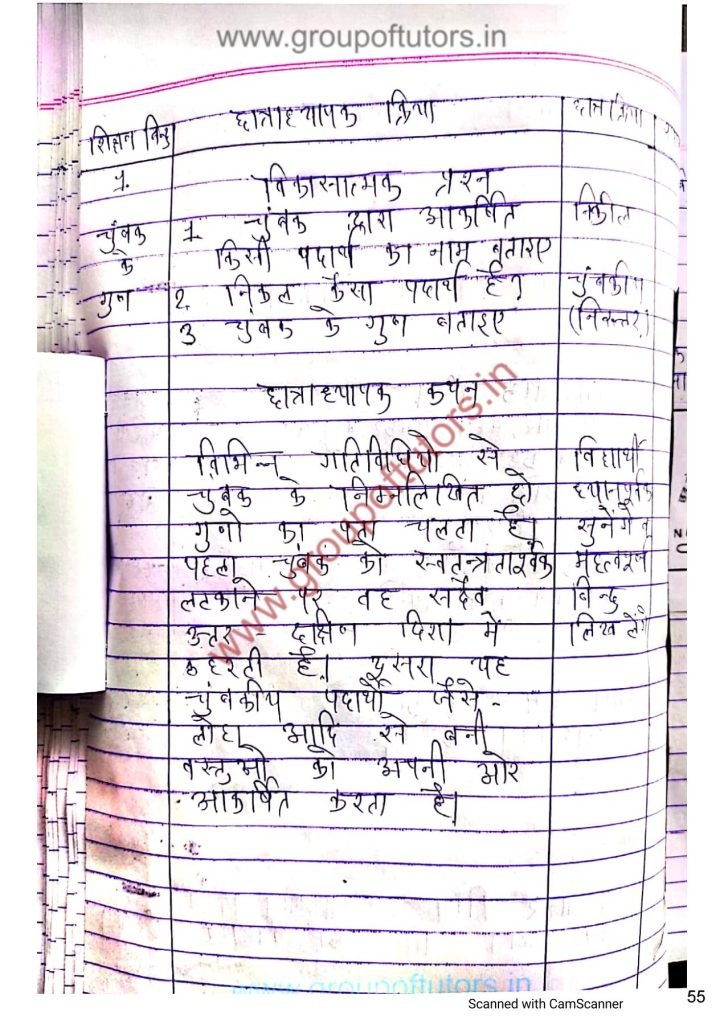 www.groupoftutors.in
शिक्षण बिन्दु छात्राध्यापक क्रिया छात्र क्रिया
1. विकासात्मक प्रश्न
चुंबक 1. चुंबक द्वारा आकर्षित निकील
के किसी पदार्थ का नाम बताइए
गुण 2. निकल कैसा पदार्थ है? चुंबकीय
3 चुंबक के गुण बताइए (निरुत्तर)
छात्राध्यापक कथन
विभिन्न गतिविधियो से विद्यार्थी
चुंबक के निम्नलिखित दो ध्यानपूर्वक
गुणो का पता चलता है। सुनेंगे व
पहला चुंबक को स्वतन्त्रतापूर्वक महत्वपूर्ण
लटकाने पर वह सदैव बिन्दु
उत्तर - दक्षिण दिशा में लिख लेंगे
ठहरती है। दूसरा यह
चुंबकीय पदार्थों जैसे -
लोहा आदि से बनी
वस्तुओ को अपनी ओर
आकर्षित करता है।
www.groupoftutors.in
www.groupoftutors.in
Scanned with CamScanner
55